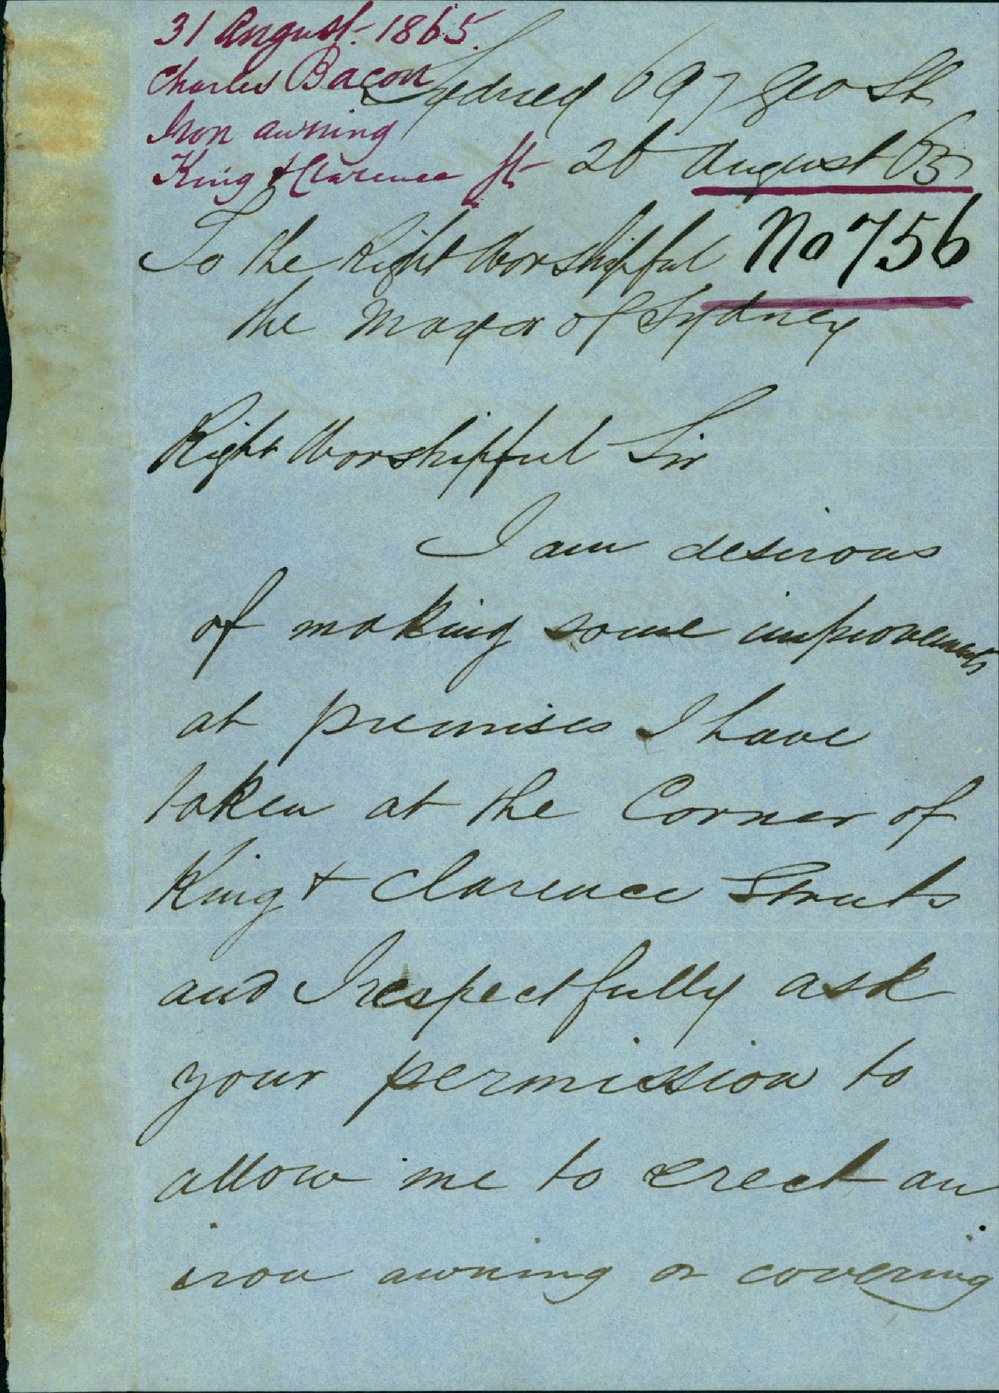 31 August 1865
Charles Bacon
Iron awning
King & Clarence St
Sydney 697 Geo St
26 August 65
No 756
To the Right Worshipful
the Mayor of Sydney
Right Worshipful Sir
I am desirous
of making some improvements
at premises I have
taken at the Corner of
King & Clarence Streets
and I respectfully ask
your permission to
allow me to erect an
iron awning or covering